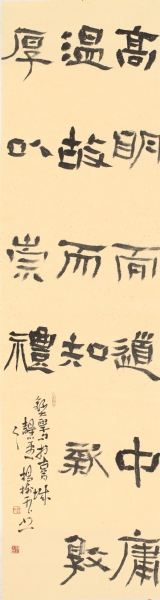 高明而道中庸
溫故而知新敦
厚以崇禮